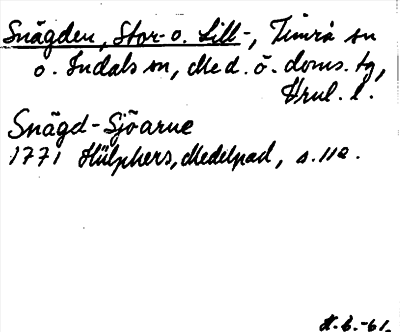 Snägden, Stor- o. Lill-, Timrå sn
o. Indals sn, Med. ö. doms. tg,
Vrnl. l.
Snägd-Sjöarne
1771 Hülphers, Medelpad, s. 110.
H.B.-61.